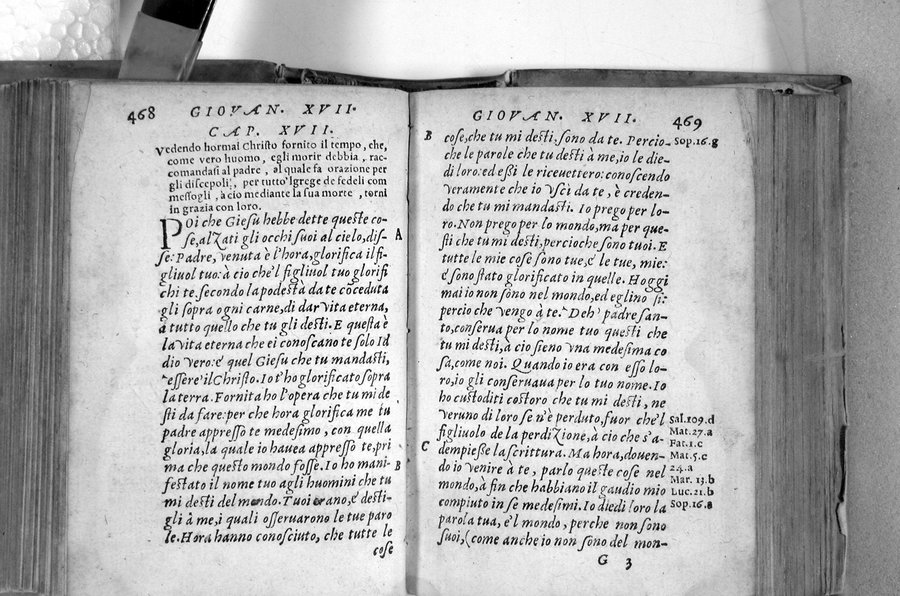 468 GIOVAN. XVII.
CAP. XVII.
Vedendo hormai Christo fornito il tempo, che,
come vero huomo, egli morir debbia, rac-
comandasi al padre, al quale fa orazione per
gli discepoli, per tutto'l grege de fedeli com
messogli, à cio mediante la sua morte, torni
in grazia con loro.
Poi che Giesu hebbe dette queste co-
se, alzati gli occhi suoi al cielo, dis- A
se: Padre, venuta è l'hora, glorifica il fi-
gliuol tuo: à cio ch'el figliuol tuo glorifi
chi te. secondo la podestà da te cōceduta
gli sopra ogni carne, di dar vita eterna,
à tutto quello che tu gli desti. E questa è
la vita eterna che ei conoscano te solo Id
dio vero: e' quel Giesu che tu mandasti,
"essere" il Christo. Io t'ho glorificato sopra
la terra. Fornita ho l'opera che tu mi de
sti da fare: per che hora glorifica me tu
padre appresso te medesimo, con quella
gloria, la quale io hauea appresso te, pri
ma che questo mondo fosse. Io ho mani- B
festato il nome tuo agli huomini che tu
mi desti del mondo. Tuoi erano, e' desti-
gli à me, i quali osseruarono le tue paro
le. Hora hanno conosciuto, che tutte le
cose
GIOVAN. XVII. 469
B cose, che tu mi desti. sono da te. Percio- Sop.16.g
che le parole che tu desti à me, io le die-
di loro: ed essi le riceuettero: conoscendo
veramente che io vscì da te, è creden-
do che tu mi mandasti. Io prego per lo-
ro. Non prego per lo mondo, ma per que-
sti che tu mi desti, percioche sono tuoi. E
tutte le mie cose sono tue, e' le tue, mie:
e' sono stato glorificato in quelle. Hoggi
mai io non sono nel mondo, ed eglino si:
percio che vengo à te. Deh' padre san-
to, conserua per lo nome tuo questi che
tu mi desti, à cio sieno vna medesima co
sa, come noi. Quando io era con esso lo-
ro, io gli conseruaua per lo tuo nome. Io
ho custoditi costoro che tu mi desti, ne
veruno di loro se n'è perduto, fuor che'l Sal.109.d
figliuolo de la perdizione, à cio che s'a- Mat.27.a
C dempiesse la scrittura. Ma hora, douen- Fat.1.c
do io venire à te, parlo queste cose nel Mat.5.c
mondo, à fin che habbiano il gaudio mio 24.a
compiuto in se medesimi. Io diedi loro la Mar.13.b
parola tua, e'l mondo, perche non sono Luc.21.b
suoi, (come anche io non sono del mon- Sop.16.a
G 3